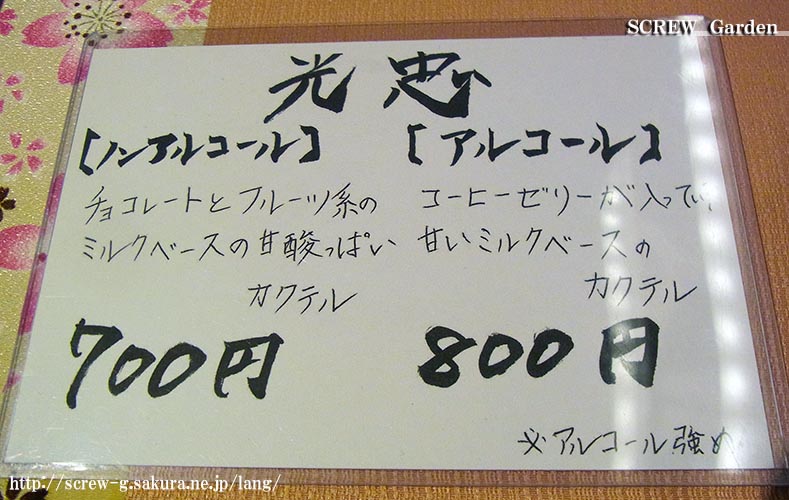 SCREW Garden
光忠
【ノンアルコール】
チョコレートとフルーツ系の
ミルクベースの甘酸っぱい
カクテル
700円
【アルコール】
コーヒーゼリーが入ってい
甘いミルクベースの
カクテル
800円
※アルコール強め
http://screw-g.sakura.ne.jp/lang/